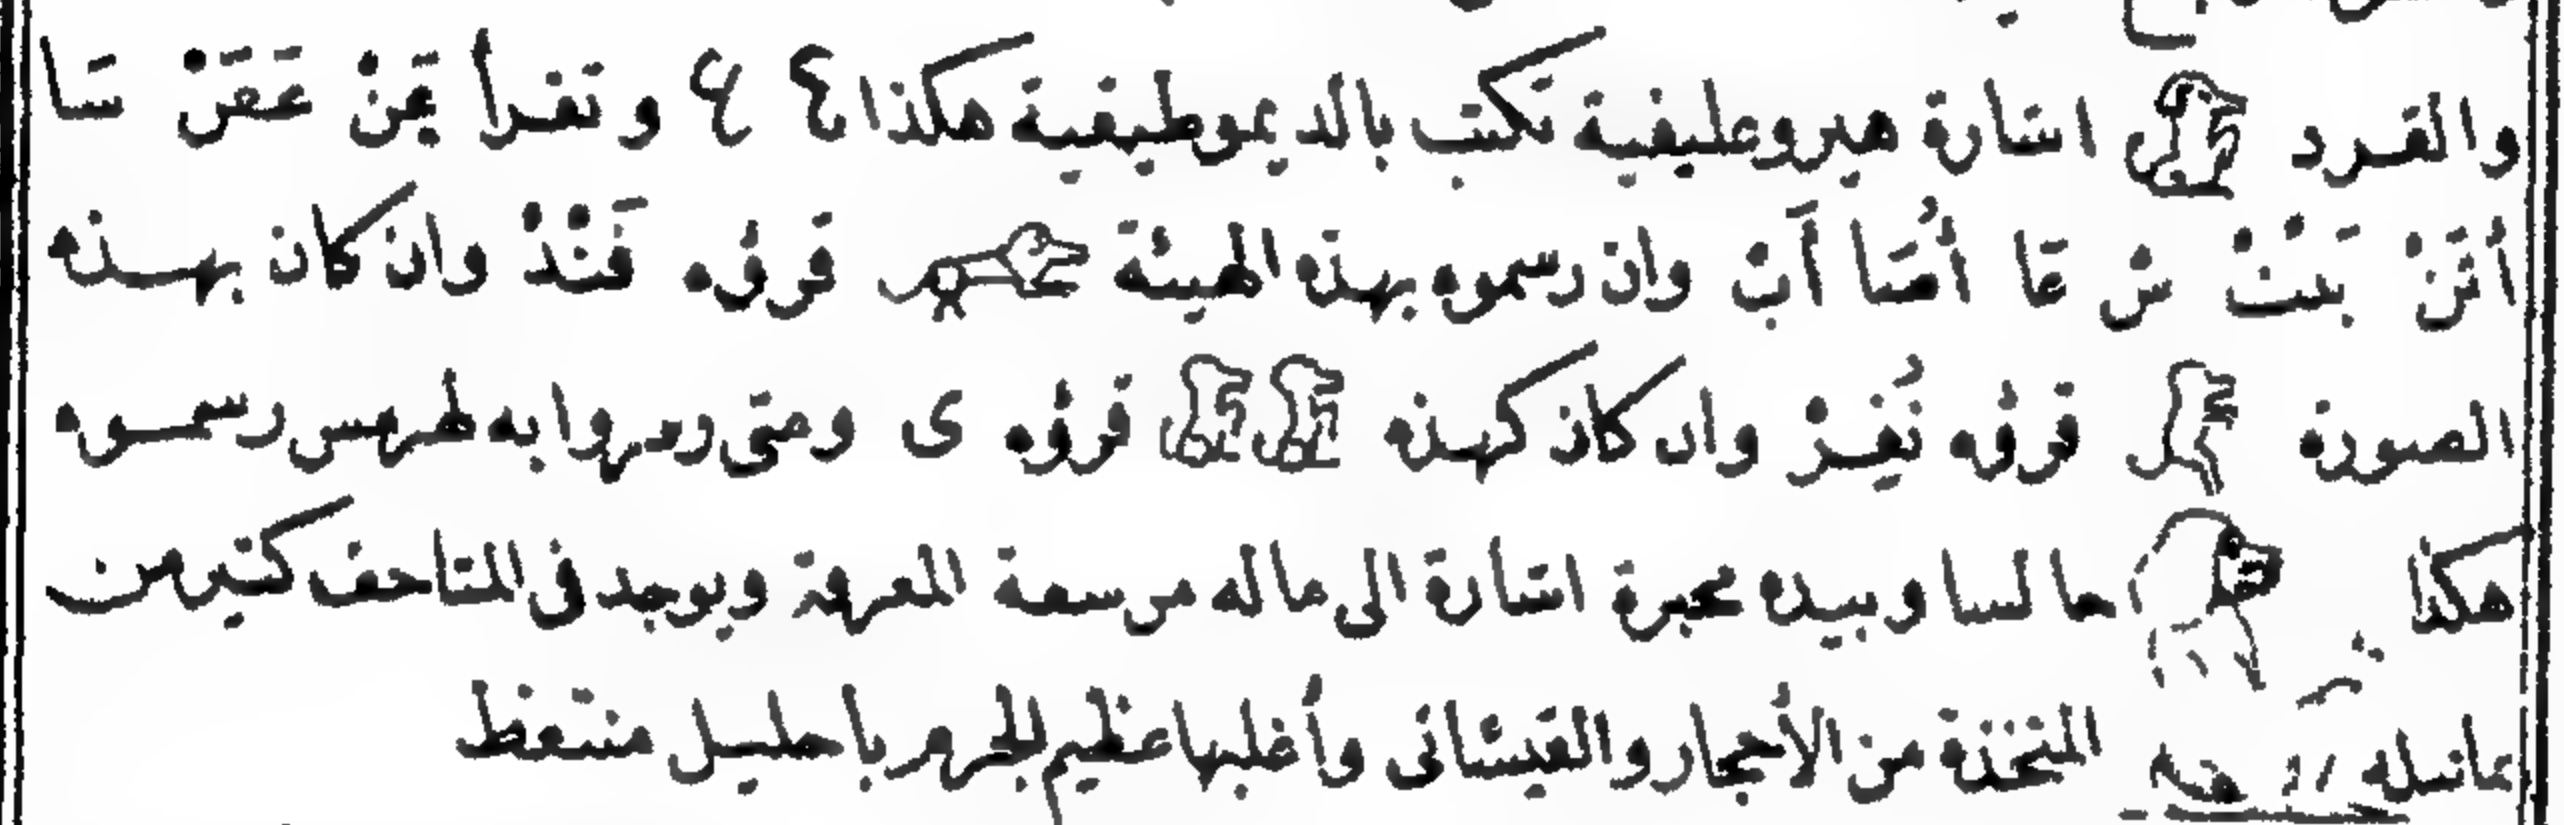 والقرد اشارة هيروغليفية تكتب بالديموطيقية هكذا وتقرأ عَقَنْ سَا
بَنْتْ شْ قَا أُمَا آبْ وان رسموه بهذه الهيئة قرؤه قَنْدْ وان كان بهذه
الصورة قرؤه نُفِرْ وان كان كهذه قرؤه ى ومتى رمزوا به لهرمس رسموه
هكذا جالسا وبيده محبرة اشارة الى ماله من سعة المعرفة ويوجد فى المتاحف كثير من
تماثيله المتخذة من الأحجار والقيشانى وأغلبها عظيم الجرم باحليل منتعظ